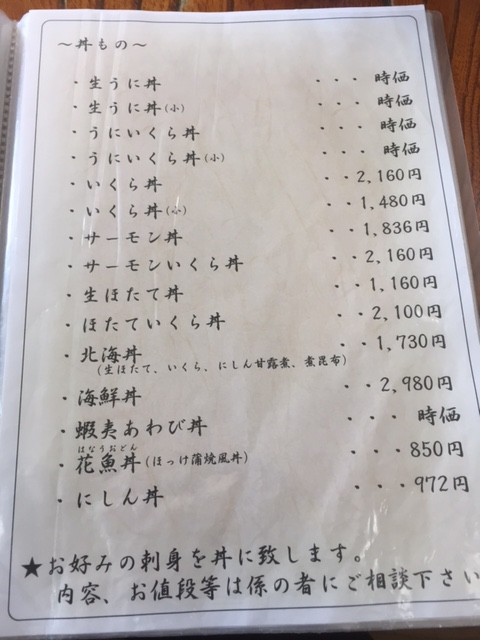 ～丼もの～
・生うに丼 ・・・ 時価
・生うに丼(小) ・・・ 時価
・うにいくら丼 ・・・ 時価
・うにいくら丼(小) ・・・ 時価
・いくら丼 ・・2,160円
・いくら丼(小) ・・1,480円
・サーモン丼 ・・1,836円
・サーモンいくら丼 ・・2,160円
・生ほたて丼 ・・1,160円
・ほたていくら丼 ・・2,100円
・北海丼 ・・1,730円
(生ほたて、いくら、にしん甘露煮、煮昆布)
・海鮮丼 ・・2,980円
・蝦夷あわび丼 ・・・ 時価
はなうおどん
・花魚丼(ほっけ蒲焼風丼) ・・・850円
・にしん丼 ・・・972円
★お好みの刺身を丼に致します。
内容、お値段等は係の者にご相談下さい